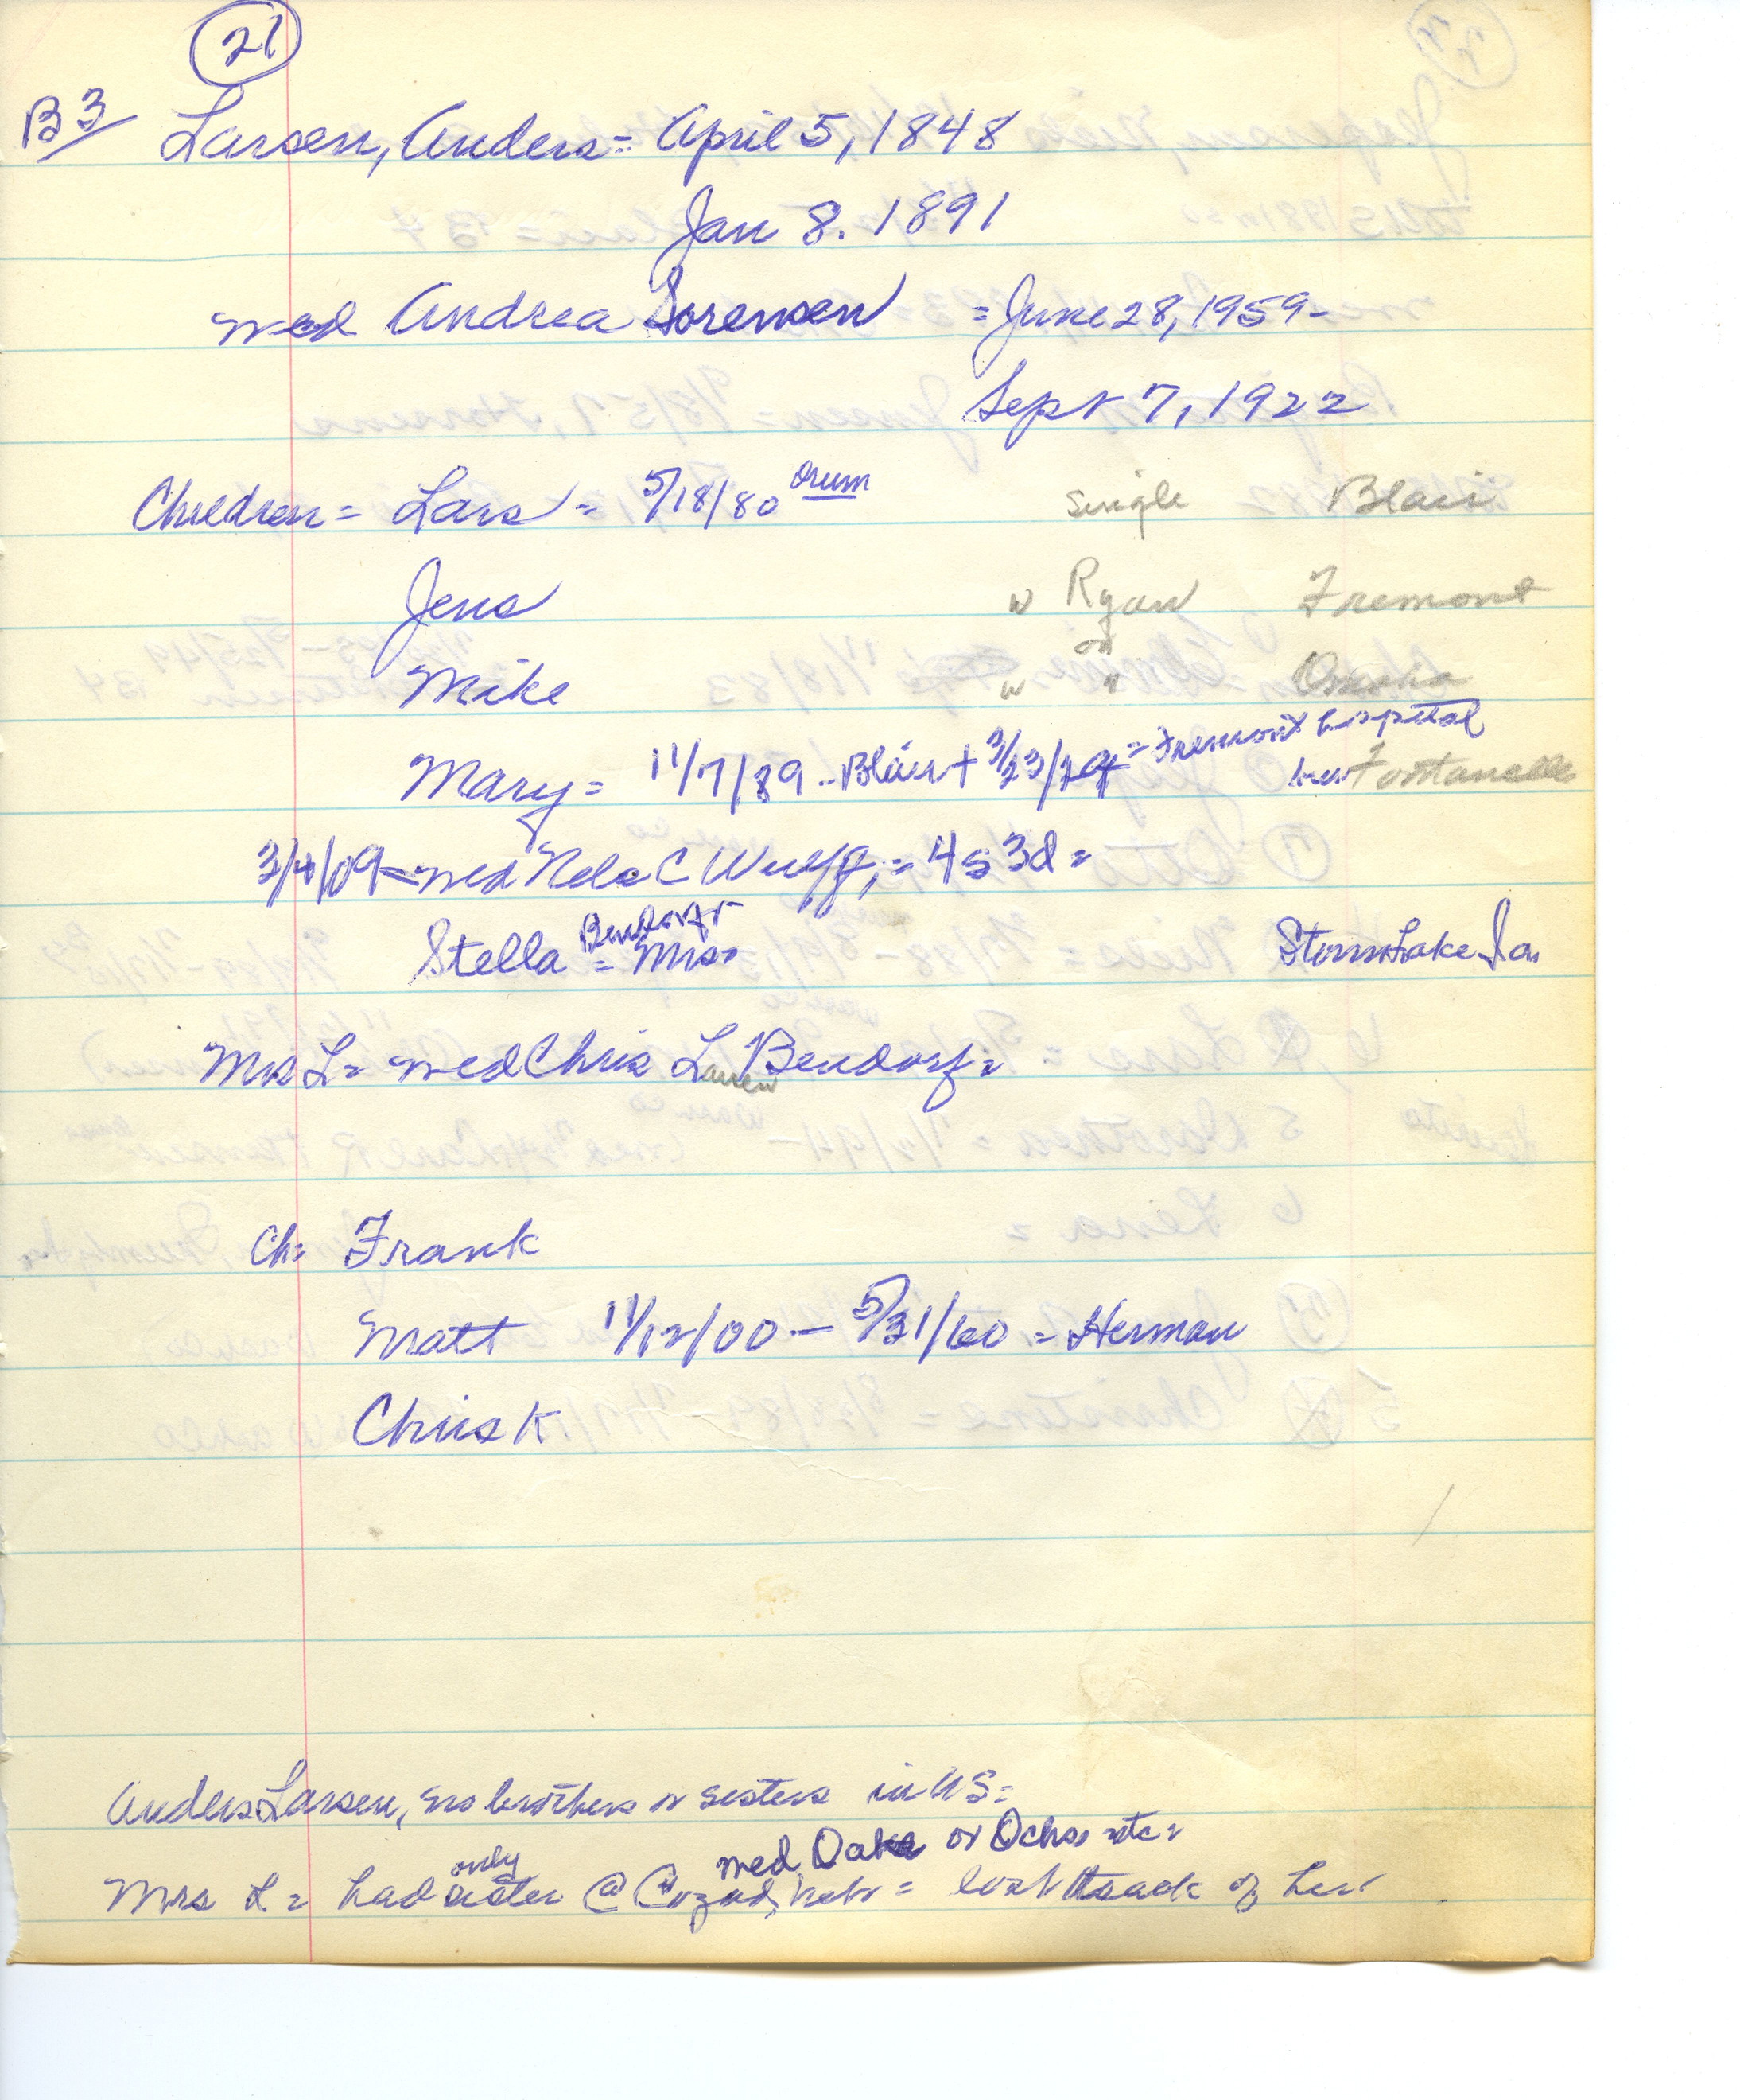 21
B3 Larsen, Anders = April 5, 1848
Jan 8. 1891
med Andrea Sorensen = June 28, 1959 -
Sept 7, 1922
Children = Lars = 5/18/80 Orum Single Blair
Jens w Ryan Fremont
or
Mike w " Omaha
Mary = 11/7/89 .. Blair + 3/23/ = Fremont hospital
Fontanelle
3/4/09 - med Nels C Wulff, = 4s 3d =
Bendorf
Stella = Mrs Storm Lake Ia
Mrs L = med Chris L Bendorf =
Larsen
Ch = Frank
Matt 11/12/00 - 5/31/60 = Herman
Chris K
Anders Larsen, no brothers or sisters in US =
only med Oaks or Ochs etc =
Mrs L = had sister @ Cozad, Nebr = lost track of her